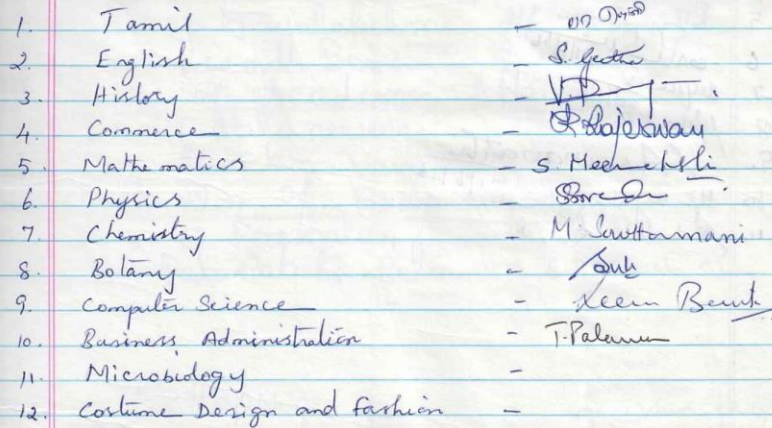 1. Tamil -
2. English - S. Geetha
3. History -
4. Commerce - R Rajeswari
5. Mathematics - S. Meenakshi
6. Physics -
7. Chemistry - M. Sowthamani
8. Botany -
9. Computer Science -
10. Business Administration -
11. Microbiology -
12. Costume Design and fashion -